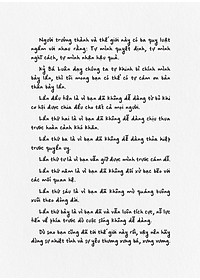 Người trưởng thành và thế giới này có ba quy luật
ngầm với nhau rằng: Tự mình quyết định, tự mình
nghĩ cách, tự mình nhận hậu quả.
Kỳ Bá Luân dạy chúng ta tự khinh bỉ chính mình
bảy lần, thì tôi mong bạn có thể tự cảm ơn bản
thân bảy lần.
Lần đầu tiên là vì bạn đã không dễ dàng từ bỏ khi
cơ hội được chia đều cho tất cả mọi người.
Lần thứ hai là vì bạn đã không dễ dàng chịu thua
trước hoàn cảnh khó khăn.
Lần thứ ba là vì bạn đã không dễ dàng thỏa hiệp
trước quyền uy.
Lần thứ tư là vì bạn vẫn giữ được mình trước cám dỗ.
Lần thứ năm là vì bạn đã không đối xử bạc bẽo với
các mối quan hệ.
Lần thứ sáu là vì bạn đã không mù quáng buông
xuôi theo dòng đời.
Lần thứ bảy là vì bạn đã và vẫn luôn tích cực, nỗ lực
tiến về phía trước dù cuộc sống không dễ dàng.
Dù sao bạn cũng đã tới thế giới này rồi, vậy nên hãy
dùng sự nhất tình và sự yêu thương vững bả, vững vàng.